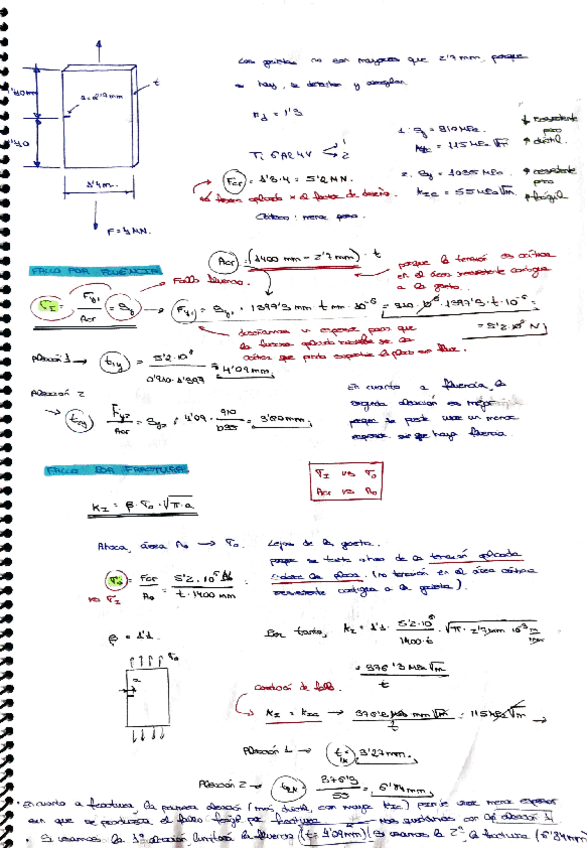 Las grietas no son mayores que 2'7 mm, porque
si hay, se detectan y arreglan.
a = 2'7 mm
t
1'4 m.
F = 4 MN.
n_d = 1'3
Ti 6Al 4V
1
2
1: Sy = 910 MPa.
K_IC = 115 MPa √m
↓ resistente
pero
↑ dúctil.
2. Sy = 1035 MPa
K_IC = 55 MPa √m
↑ resistente
pero
↑ frágil
F_cr = 1'3·4 = 5'2 MN.
Fuerza aplicada x el factor de diseño.
Criterio: menor peso.
A_cr = (1400 mm - 2'7 mm) · t
porque la tensión es crítica
en el área resistente contigua
a la grieta.
FALLO POR FLUENCIA
Falla fluencia.
σ_I = F_y1 / A_cr = Sy
F_y1 = Sy1 · 1397'3 mm t mm · 10^-6 = 910 · 10^6 · 1397'3 · t · 10^-6 =
= 5'2 · 10^6 N
diseñamos un espesor para que
la fuerza aplicada
Aleación 1 → t_1y = 5'2 · 10^6 / 0'910 · 1'397 = 4'09 mm,
Aleación 2
→ t_2y
F_y2 / A_cr = Sy2 ; 4'09 · 910 / 1035 = 3'60 mm,
En cuanto a fluencia, la
segunda aleación es mejor
porque se puede usar un menor
espesor sin que haya fluencia.
FALLO POR FRACTURA
σ_I vs σ_0
A_cr vs A_0
K_I = β · σ_0 · √π · a
Ahora, área A_0 → σ_0. Lejos de la grieta.
porque se trata ahora de la tensión aplicada
sobre la placa. (no tensión en el área crítica
resistente contigua a la grieta).
σ_0 = F_cr / A_0 = 5'2 · 10^6 N / t · 1400 mm
no σ_I
β = 1'1.
σ_0
Por tanto, K_I = 1'1 · 5'2 · 10^6 / 1400 · t · √π · 2'7 mm 10^-3 m/mm
= 376'3 MPa √m / t
condición de fallo.
K_I = K_IC → 376'3 MPa mm √m / t = 115 MPa √m →
Aleación 1 → t_1k = 3'27 mm.
Aleación 2 → t_2k = 376'3 / 55 = 6'84 mm,
· En cuanto a fractura, la primera aleación (más dúctil, con mayor K_IC) permite usar menor espesor
sin que se produzca el fallo frágil por fractura nos quedamos con la aleación 1.
· Si usamos la 1ª aleación limitará la fluencia (t = 4'09 mm) Si usamos la 2ª, la fractura (6'84 mm)